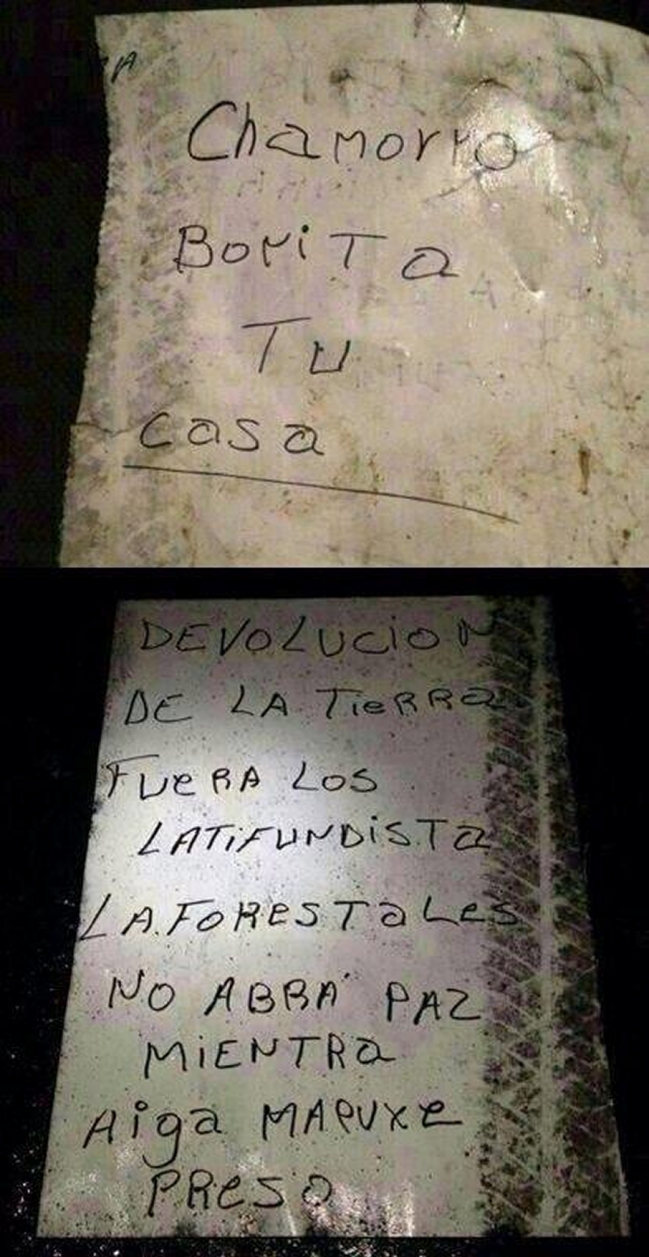 Chamorro
BoniTa
Tu
casa
DEVOLucioN
DE LA TieRRa
FueRA Los
LATiFUNDiSTa
LA.FORESTaLes
NO ABRÁ PAZ
MiENTRa
Aiga MAPUXe
PReSO